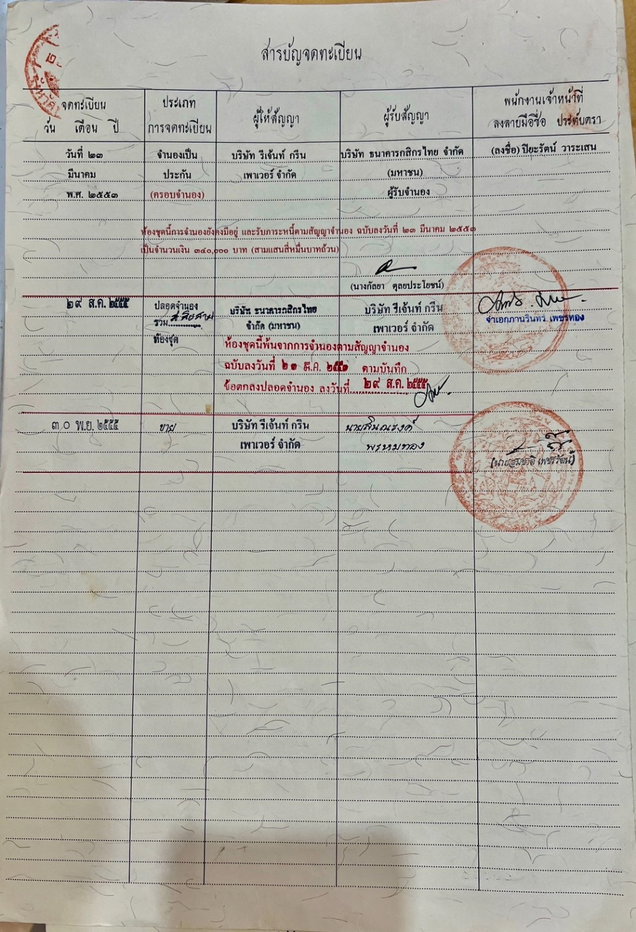 สารบัญจดทะเบียน
จดทะเบียน
วัน เดือน ปี
ประเภท
การจดทะเบียน
ผู้ให้สัญญา
ผู้รับสัญญา
พนักงานเจ้าหน้าที่
ลงลายมือชื่อ ประทับตรา
วันที่ ๒๓
มีนาคม
พ.ศ. ๒๕๕๓
จำนองเป็น
ประกัน
(ครอบจำนอง)
บริษัท รีเจ้นท์ กรีน
เพาเวอร์ จำกัด
บริษัท ธนาคารกสิกรไทย จำกัด
(มหาชน)
ผู้รับจำนอง
(ลงชื่อ) ปิยะรัตน์ วาระเสน
ห้องชุดนี้การจำนองยังคงมีอยู่ และรับภาระหนี้ตามสัญญาจำนอง ฉบับลงวันที่ ๒๓ มีนาคม ๒๕๕๑
เป็นจำนวนเงิน ๓๔๐,๐๐๐ บาท (สามแสนสี่หมื่นบาทถ้วน)
(นางกัลยา ตุลยประโยชน์)
๒๙ ส.ค. ๒๕๕๕
ปลอดจำนอง
รวม
ห้องชุด
บริษัท ธนาคารกสิกรไทย
จำกัด (มหาชน)
บริษัท รีเจ้นท์ กรีน
เพาเวอร์ จำกัด
จ่าเอกภานรินทร์ เพชรทอง
ห้องชุดนี้พ้นจากการจำนองตามสัญญาจำนอง
ฉบับลงวันที่ ๒๕๕๑ ตามบันทึก
ข้อตกลงปลอดจำนอง ลงวันที่ ๒๙ ส.ค. ๒๕๕๕
๓๐ พ.ย. ๒๕๕๕
ขาย
บริษัท รีเจ้นท์ กรีน
เพาเวอร์ จำกัด
นายสินณรงค์
พรหมทอง